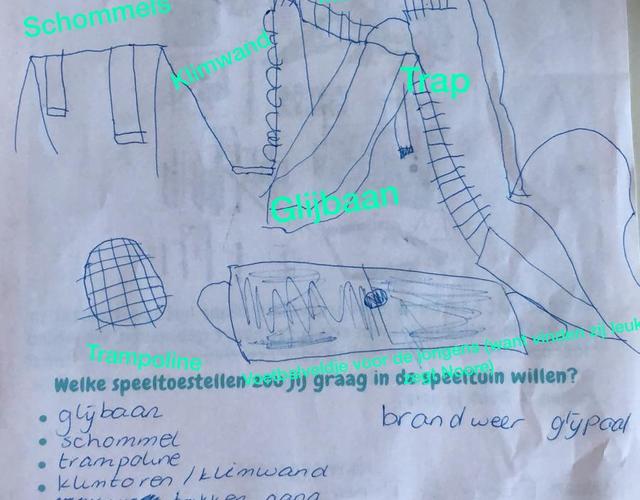 Schommels
Klimwand
Trap
Glijbaan
Trampoline
Voetbalveldje voor de jongens (want vinden zij leuk
zegt Noore)
Welke speeltoestellen zou jij graag in de speeltuin willen?
• glijbaan
• schommel
• trampoline
• klimtoren / klimwand
brandweer glijpaal